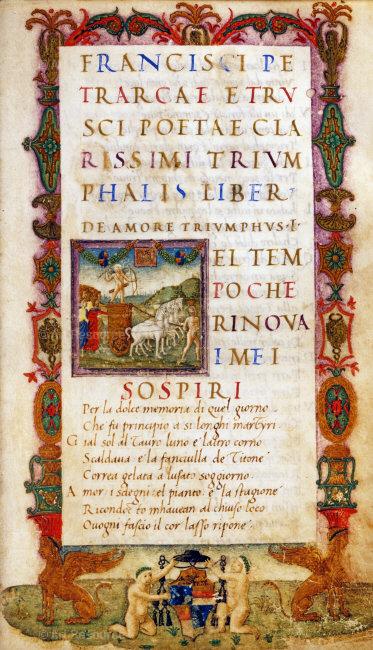 FRANCISCI PE
TRARCAE ETRV
SCI POETAE CLA
RISSIMI TRIVM
PHALIS LIBER
DE AMORE TRIVMPHVS·I·
EL TEM
PO CHE
RINOVA
I MEI
SOSPIRI
Per la dolce memoria di quel giorno
Che fu principio a si longhi martyri
Gial sol al Tauro luno e laltro corno
Scaldaua e la fanciulla de Titone
Correa gelata a lusato soggiorno.
Amor i sdegni el pianto e la stagione
mhauean al chiuso loco
Ouogni fascio il cor lasso ripone.